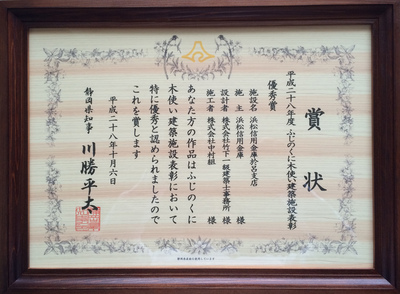 賞状
平成二十八年度 ふじのくに木使い建築施設表彰
優秀賞
施設名 浜松信用金庫於呂支店
施主 浜松信用金庫 様
設計者 株式会社竹下一級建築士事務所 様
施工者 株式会社中村組 様
あなた方の作品はふじのくに
木使い建築施設表彰において
特に優秀と認められましたので
これを賞します
平成二十八年十月六日
静岡県知事 川勝平太